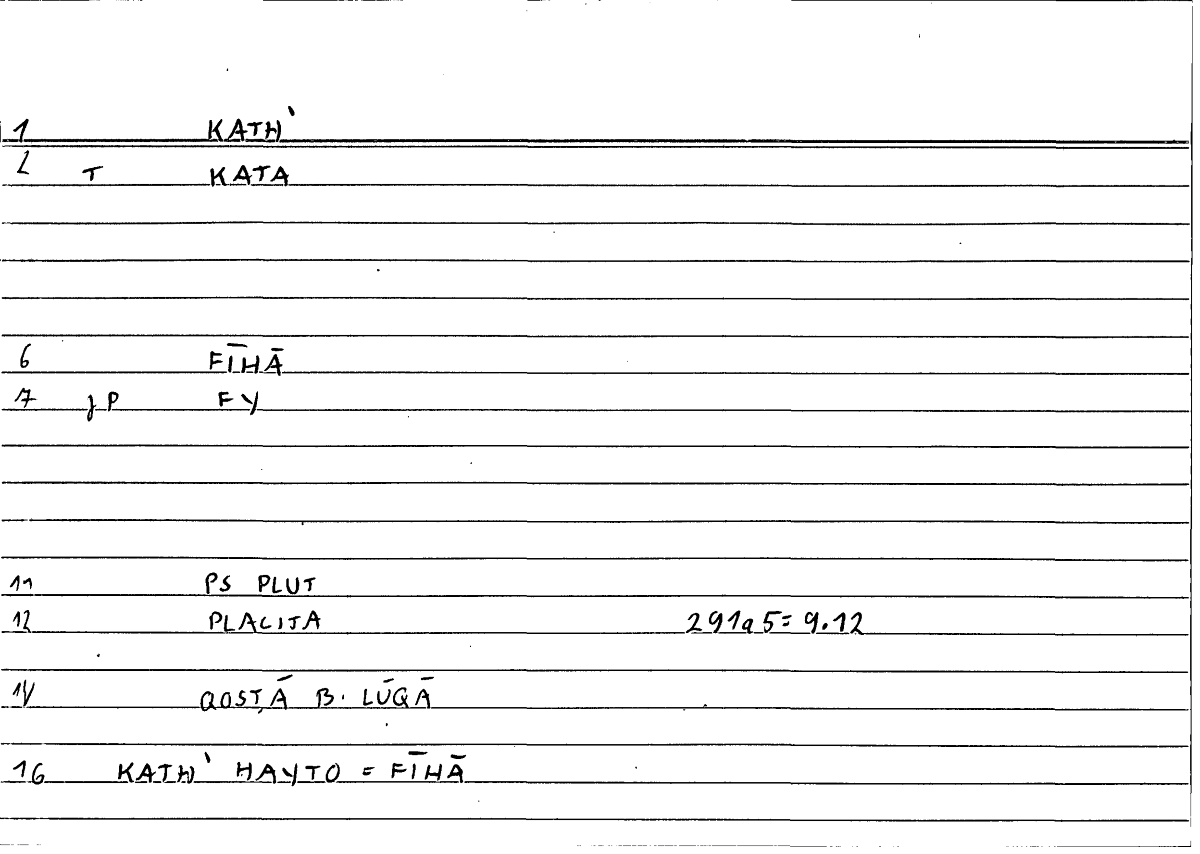 1 KATH`
2 T KATA
6 FĪHĀ
7 jP FY
11 PS PLUT
12 PLACITA 291a5= 9.12
14 QOSṬĀ B. LŪQĀ
16 KATH` HAYTO = FĪHĀ